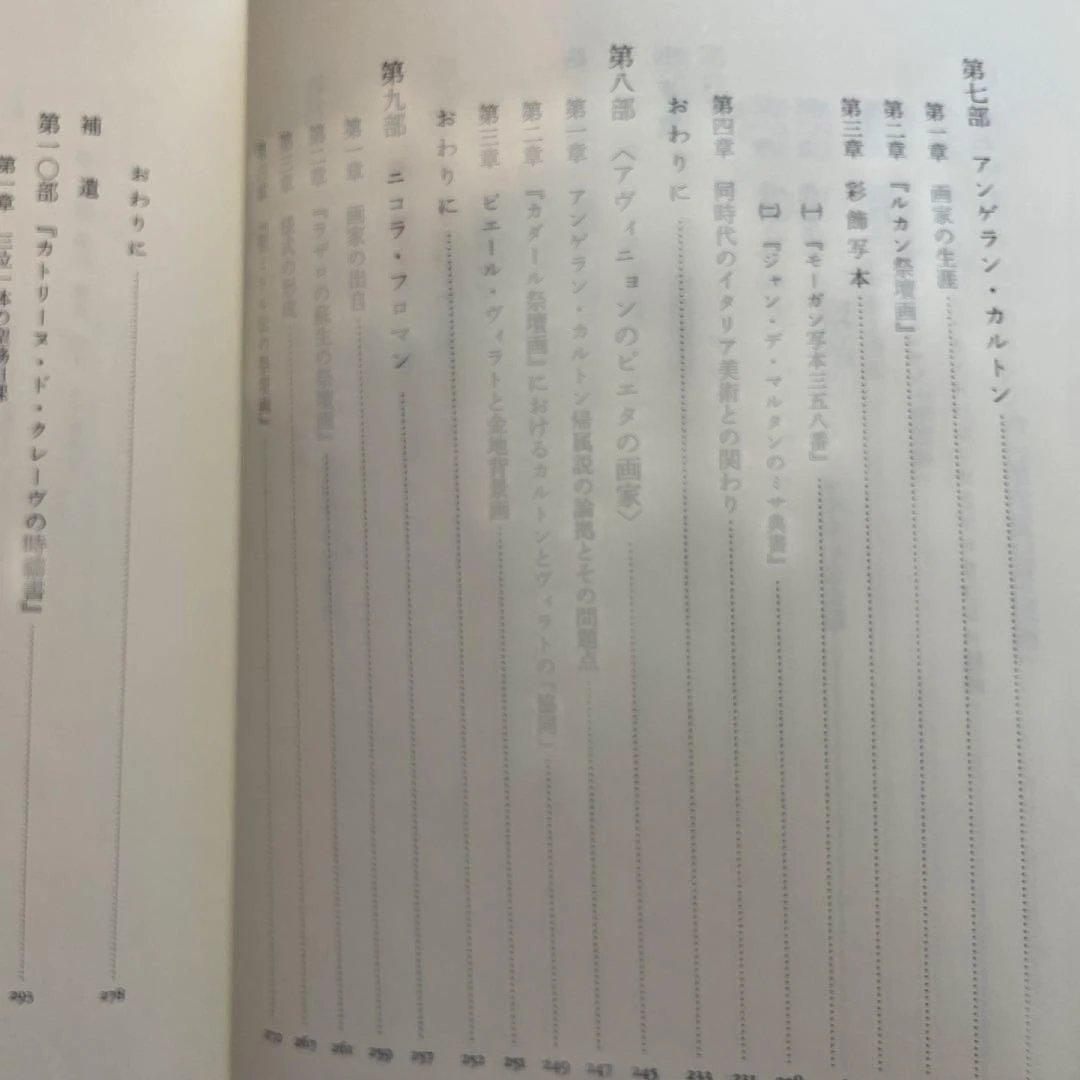 第七部 アンゲラン・カルトン
第一章 画家の生涯
第二章 『ルカン祭壇画』
第三章 彩飾写本
㈠ 『モーガン写本三五八番』
㈡ 『ジャン・デ・マルタンのミサ典書』
第四章 同時代のイタリア美術との関わり 231
おわりに 233
第八部 〈アヴィニョンのピエタの画家〉 245
第一章 アンゲラン・カルトン帰属説の論拠とその問題点 247
第二章 『カダール祭壇画』におけるカルトンとヴィラトの「協同」 249
第三章 ピエール・ヴィラトと金地背景画 251
おわりに 252
第九部 ニコラ・フロマン 257
第一章 画家の出自 259
第二章 『ラザロの蘇生の祭壇画』 261
第三章 様式の形成 263
祭壇画』 271
おわりに 278
補遺
第一〇部 『カトリーヌ・ド・クレーヴの時禱書』 293
第一章 三位一体の聖務日課